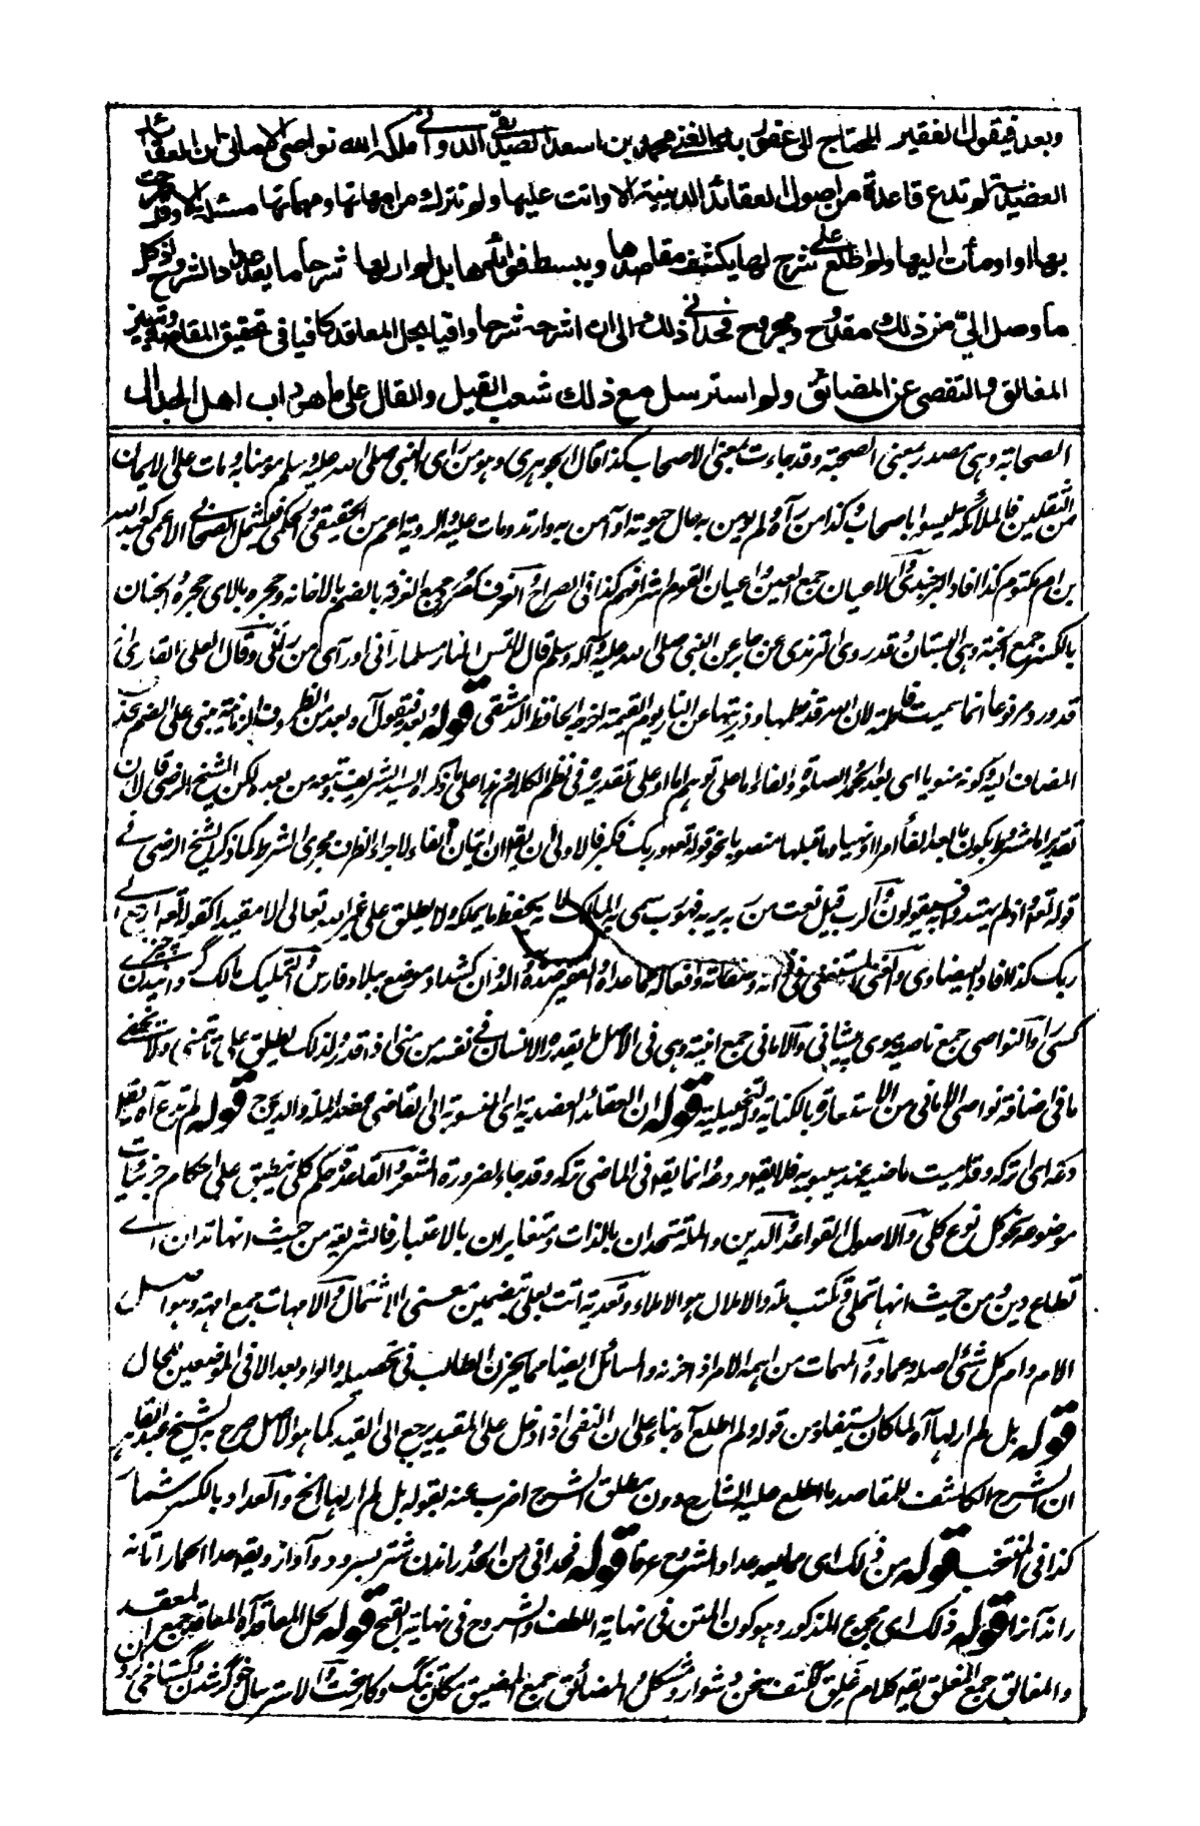 وبعد فيقول الفقير المحتاج الى عفو ربه الغنى محمد بن اسعد الصديقى الدوانى ملكه الله نواصى الامانى ان العقائد
العضدية لم تدع قاعدة من اصول العقائد الدينية الا واتت عليها ولم تترك من امهاتها ومهماتها مسئلة الا وقد صرحت
بها او اومأت اليها ولم اطلع على شرح لها يكشف مقاصدها ويبسط فوائدها بل لم ار لها شرحا ما يعد عدادا لشروح اذ كل
ما وصل الىّ من ذلك مقدوح ومجروح فحدانى ذلك الى ان اشرحه شرحا وافيا بحل المعاقد كافيا فى تحقيق المقاصد وتمييز
المغالق والتفصى عن المضائق ولم استرسل مع ذلك شعب القيل والقال على ما هو داب اهل الجدال
الصحابة وهى مصدر بمعنى الصحبة وقد جاءت بمعنى الاصحاب كذا قال الجوهرى وهو من راى النبى صلى الله عليه وسلم مؤمنا به ومات على الايمان
من الثقلين فالملائكة ليسوا باصحاب وكذا من رآه ولم يومن به حال حيوته او آمن به وارتد ومات عليه والروية اعم من الحقيقى والحكمى فيشمل الصحابى الاعمى كعبد الله
بن ام مكتوم كذا افاد البرجندى والاعيان جمع العين واعيان القوم اشرافهم كذا فى الصراح والغرف كصرد جمع الغرفة بالضم بالاخانه وحجره بالاى حجره والجنان
بالكسر جمع الجنة وهى البستان وقد روى الترمذى عن جابر عن النبى صلى الله عليه وآله وسلم قال لا تمس النار مسلما رآنى او رآى من رآنى وقال العلى القارى
قد ورد مرفوعا انما سميت فاطمة لان الله قد فطمها وذريتها عن النار يوم القيمة اخرجه الحافظ الدمشقى قوله وبعد فيقول آه بعد من الظروف الزمانية مبنى على الضم بحذف
المضاف اليه وكونه منويا اى بعد الحمد والصلوة والفاء اما على توهم اما او على تقديره فى نظم الكلام وهذا على ما ذكره السيد الشريف وتبعه من بعده لكن الشيخ الرضى قال ان
تقدير اما مشروط بكون ما بعد الفاء امرا او نهيا وما قبلها منصوبا نحو قوله تعالى وربك فكبر فالاولى ان يقال ان اتيان الفاء لاجراء الظرف مجرى الشرط كما ذكر الشيخ الرضى فى
قوله تعالى واذ لم يهتدوا به فسيقولون والرب قيل نعت من ربه يربه فهو رب سمى به المالك لانه يحفظ ما يملكه ولا يطلق على غير الله تعالى الا مقيدا كقوله تعالى ارجع الى
ربك كذا افاد البيضاوى والغنى المستغنى فى ذاته وصفاته وافعاله عما عداه والفقير ضده والدوان كشداد موضع ببلاد فارس والتمليك مالك گردانيدن چيزے
كسى را والنواصى جمع ناصية موى پيشانى والامانى جمع امنية وهى فى الاصل ما يقدره الانسان فى نفسه من منى اذا قدر ولذلك يطلق على ما يتمنى ولا يخفى
ما فى اضافة نواصى الامانى من الاستعارة بالكناية والتخييلية قوله ان العقائد العضدية اى المنسوبة الى القاضى عضد الملة والدين قوله لم تدع آه يقال
دعه اى اتركه وقد اميت ماضيه عند سيبويه فلا يقال ودعه انما يقال فى الماضى تركه وقد جاء لضرورة الشعر والقاعدة حكم كلى ينطبق على احكام جزئيات
موضوعه نحو كل نوع كلى والاصول القواعد والدين والملة متحدان بالذات ومتغايران بالاعتبار فالشريعة من حيث انها تدان اے
تطاع دين ومن حيث انها تملى وتكتب ملة والاملال هو الاملاء وتعدية اتت بعلى بتضمين معنى الاشتمال والامهات جمع امهة وهو اصل
الام وام كل شئ اصله وعماده والمهمات من اهمه الامر اذا حزنه والمسائل ايضا مما يحزن الطالب فى تحصيله والواو بعد الا فى الموضعين للحال
قوله بل لم ار لها آه لما كان يستفاد من قوله ولم اطلع آه بناء على ان النفى اذا دخل على المقيد يرجع الى القيد كما هو الاصل صرح به الشيخ عبد القاهر
ان الشرح الكاشف للمقاصد ما اطلع عليه الشارح دون مطلق الشرح اضرب عنه بقوله بل لم ار لها الخ والعداد بالكسر شمار
كذا فى المنتخب قوله من ذلك اى مما يعد عداد الشروح عرفا قوله فحدانى من الحدو راندن شتر بسرود وآواز ويقال حدا الحمار اتانه
راند آنرا قوله ذلك اى مجموع المذكور وهو كون المتن فى نهاية اللطف والشروح فى نهاية القبح قوله بحل المعاقد آه المعاقد جمع المعقد
والمغالق جمع المغلق يقال كلام غلق ككتف سخن دشوار ومشكل والمضائق جمع المضيق مكان تنگ وكار سخت والاسترسال خوگر شدن وگستاخى كردن